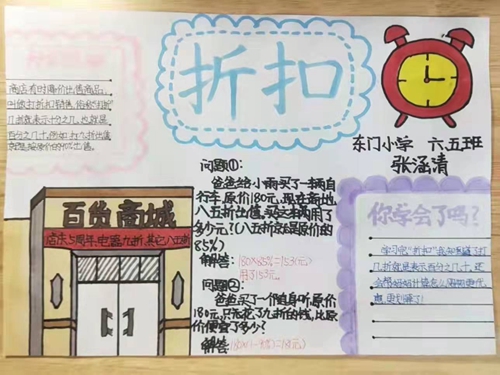 折扣
商店有时降价出售商品,
叫做打折扣销售,俗称"打折"
几折就表示十分之几,也就是
百分之几十。例如 打九折出售
就是按原价的90%出售。
东门小学 六.五班
张涵清
百货商城
店庆5周年电器九折其它八五折
问题①:
爸爸给小雨买了一辆自
行车,原价180元,现在商店
八五折出售,买这车用了
多少元?(八五折就是原价的
85%)
解答:180×85%=153(元)
用了153元
问题②:
爸爸买了一个随身听,原价
160元,只花了九折的钱,比原
价便宜了多少?
解答:
你学会了吗?
学习完"折扣"我知道了打
几折就表示百分之几十,还